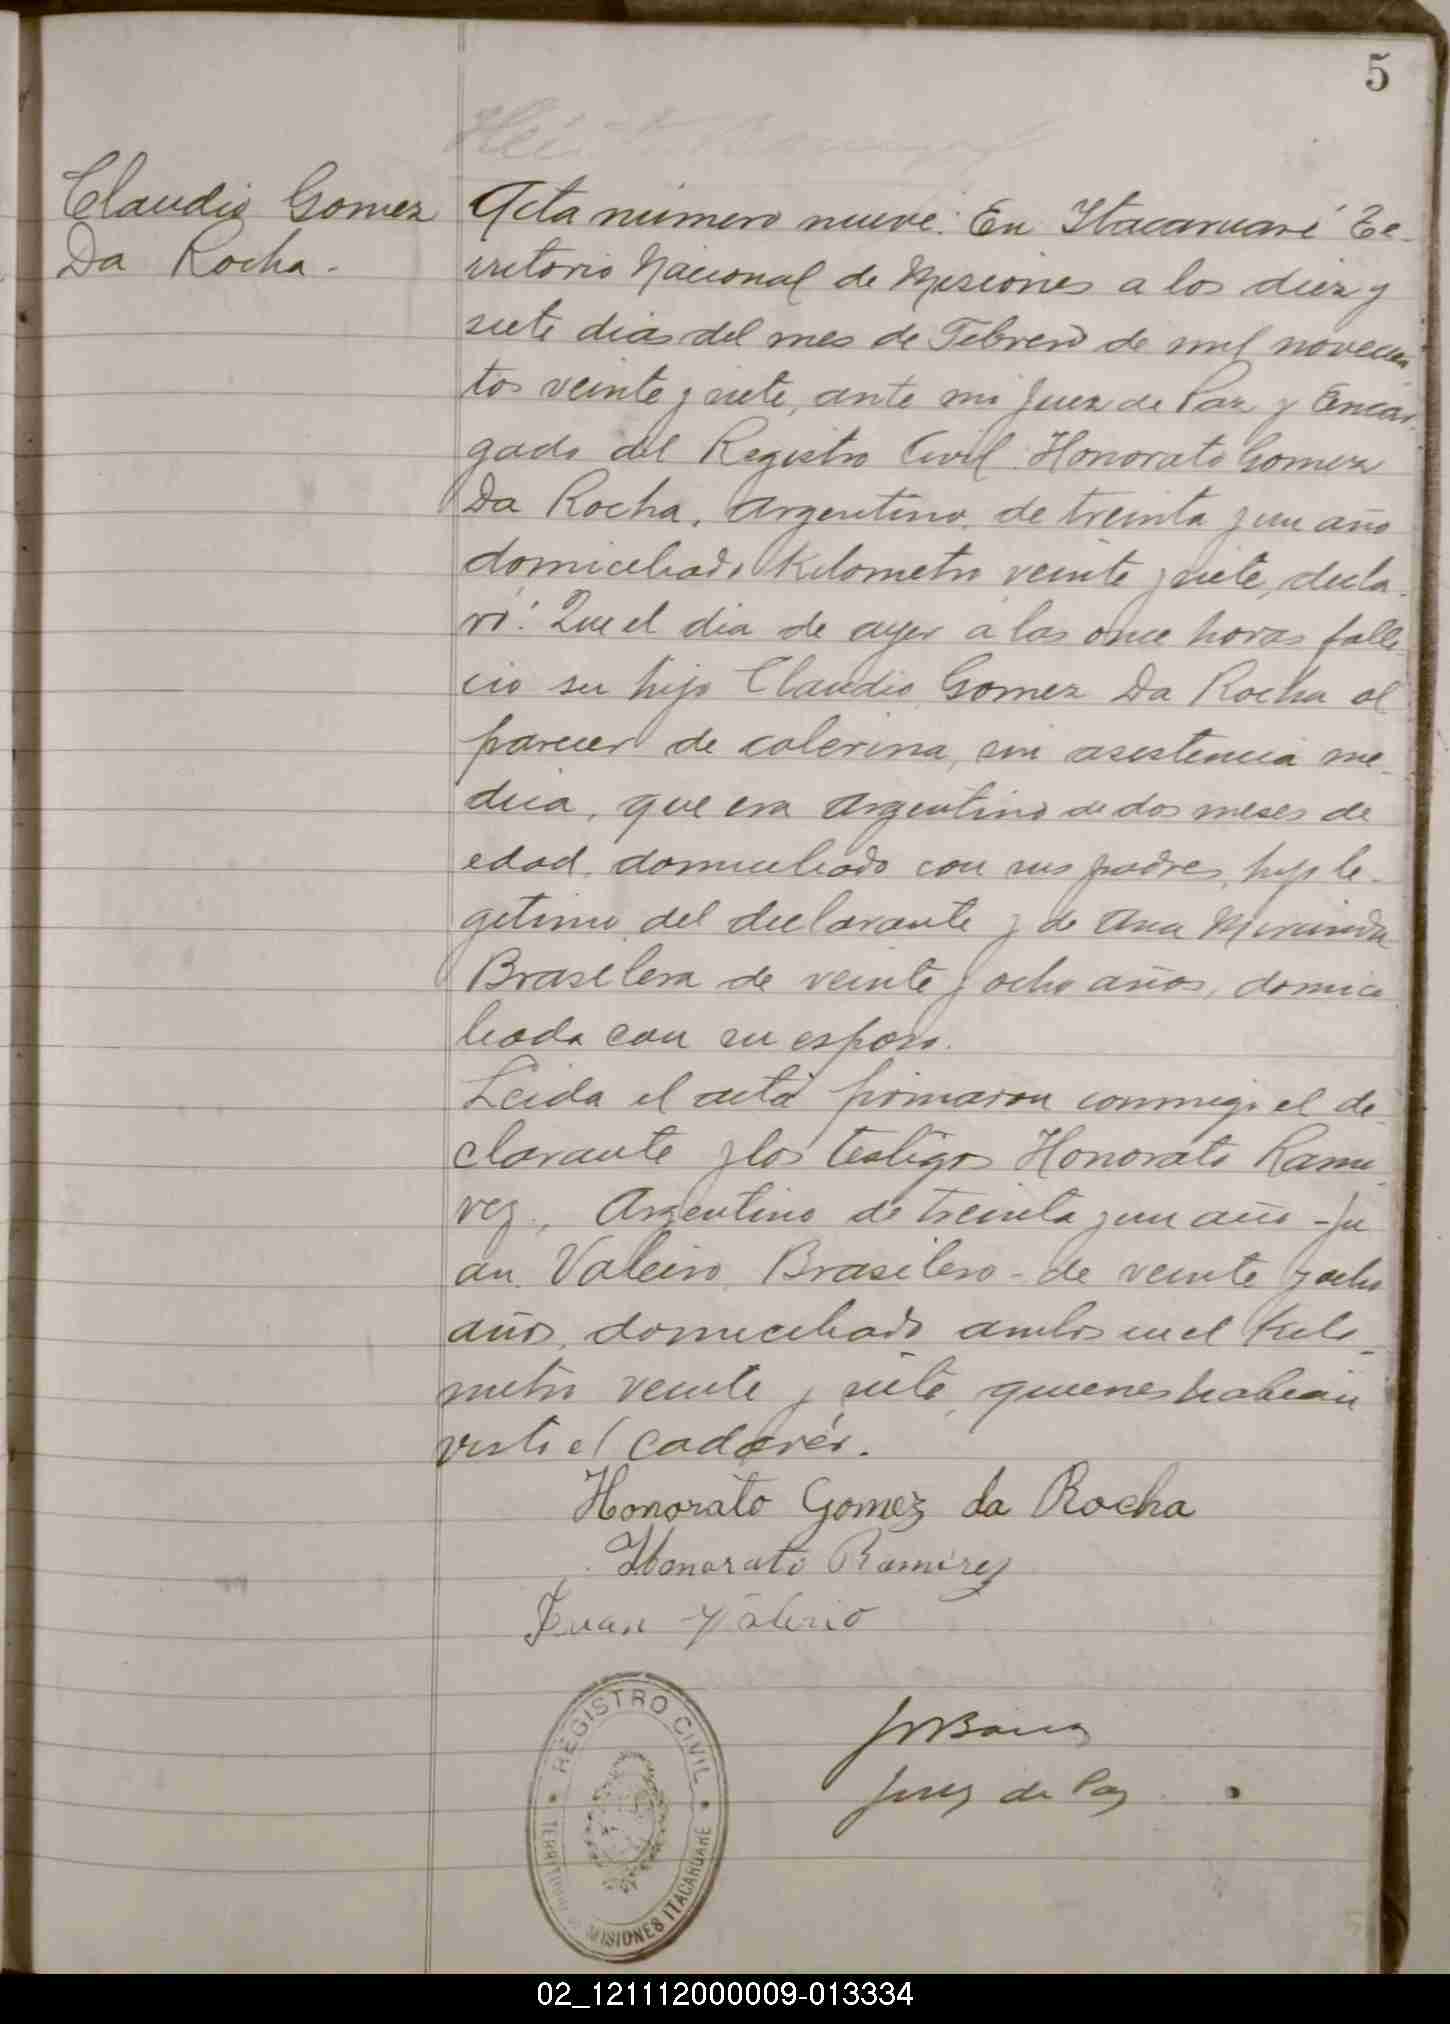 5
Claudio Gomez
Da Rocha.
Acta número nueve: En Itacaruaré Te-
rritorio Nacional de Misiones a los diez y
siete dias del mes de Febrero de mil novecien
tos veinte y siete, ante mi Juez de Paz y Encar-
gado del Registro Civil Honorato Gomez
Da Rocha, Argentino, de treinta y un año
domiciliado Kilometro veinte y siete, decla-
ró: Que el dia de ayer a las once horas falle-
cio su hijo Claudio Gomez Da Rocha al
parecer de colerina, sin asistencia me-
dica, que era Argentino de dos meses de
edad, domiciliado con sus padres, hijo le-
gitimo del declarante y de Ana
Brasilera de veinte y ocho años, domici-
liada con su esposo.
Leida el acta firmaron conmigo el de-
clarante y los testigos Honorato Rami-
rez, Argentino de treinta y un año - Ju
an Valeiro Brasilero - de veinte y ocho
años, domiciliado ambos en el Kilo-
metro veinte y siete, quienes habian
visto el cadavér.
Honorato Gomez da Rocha
Honorato Ramirez
Juan Valerio
Juez de Paz
REGISTRO CIVIL
TERRITORIO DE MISIONES ITACARUARE
02_121112000009-013334